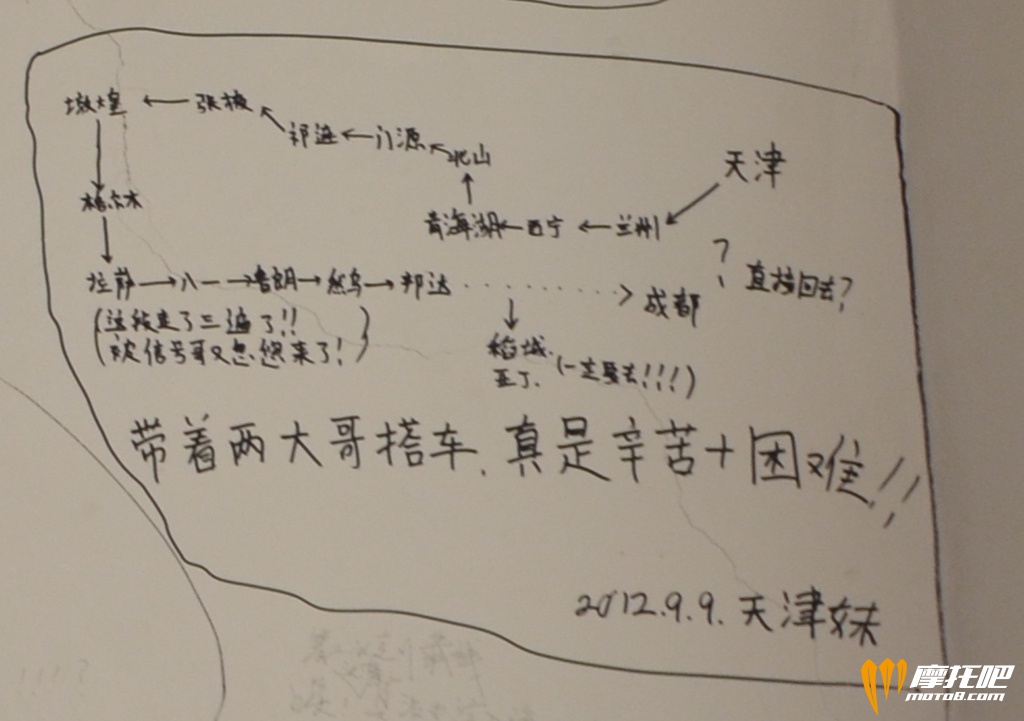 敦煌 ← 张掖 ← 祁连 ← 门源 ← 北山
天津
格尔木
青海湖 ← 西宁 ← 兰州
拉萨 → 八一 → 鲁朗 → 然乌 → 邦达 ········> 成都
? 直接回去?
(这段走了三遍了!!
次信号哥又忽然来了!)
稻城.
亚丁. (一定要去!!!)
带着两大哥搭车.真是辛苦+困难!!
2012.9.9.天津妹
摩托吧
moto8.com